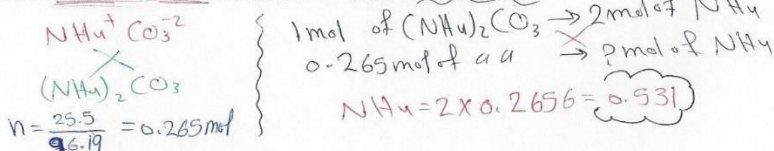 NH4+ CO3-2
(NH4)2 CO3
n = 25.5/96.19 = 0.265 mol
1 mol of (NH4)2 CO3 → 2 mol of NH4
0.265 mol of " " → ? mol of NH4
NH4 = 2 x 0.2656 = 0.531